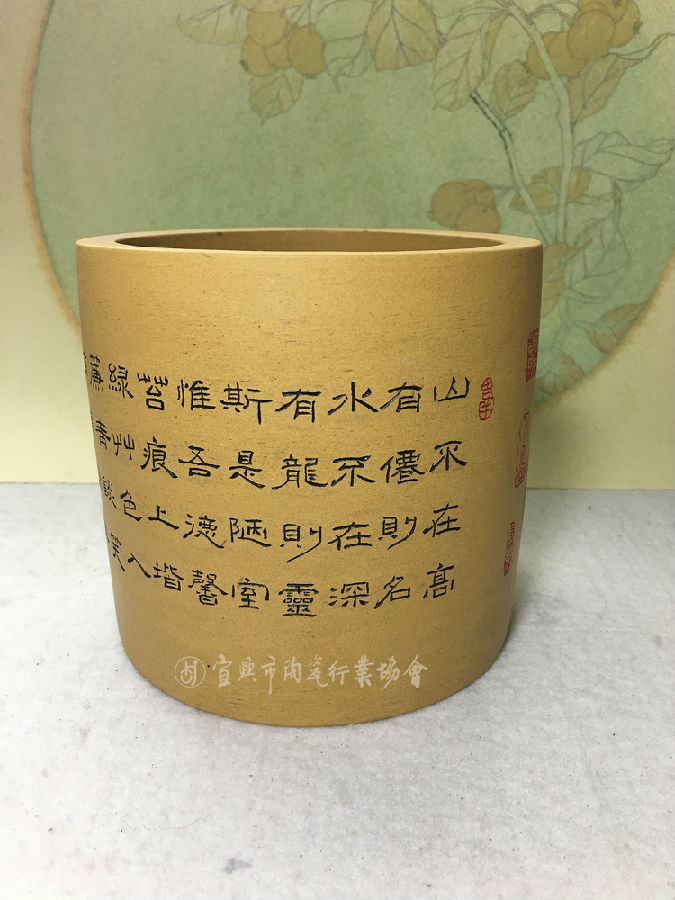 山不在高
有僊則名
水不在深
有龍則靈
斯是陋室
惟吾德馨
苔痕上堦
綠艸色入
簾青談笑
宜興市陶瓷行業協會